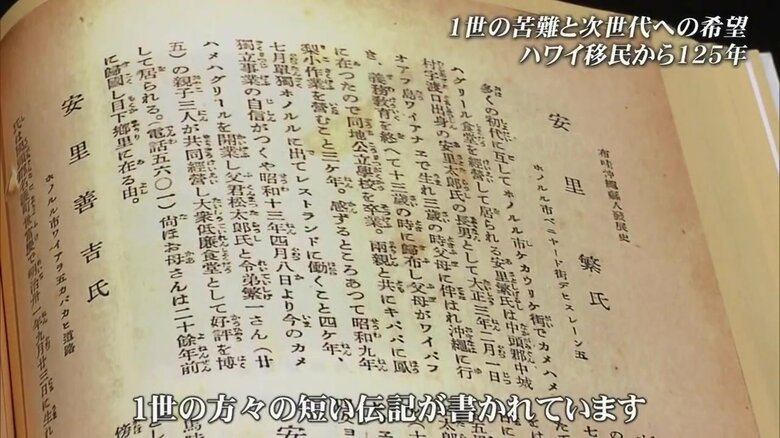 1世の苦難と次世代への希望
ハワイ移民から125年
布哇沖縄縣人發展史
安里繁氏
ホノルル市ベニヤード街デヒスレーン五
多くの初代に互してホノルル市ケカウリケ街でカメハメ
ハグリール食堂を經營して居られる安里繁氏は中頭郡中城
村字渡口出身の安里太郎氏の長男として大正三年二月一日
オアフ島ワイアナエで生れ三歳の時父母に伴はれ沖繩に行
き、義務教育を終へて十三歳の時に歸布し父母がワイパフ
に在つたので同地公立學校を卒業。兩親と共にキパパに鳳
梨小作業を營むこと三ケ年、感ずるところあつて昭和九年
七月單獨ホノルルに出てレストランドに働くこと四ケ年、
獨立事業の自信がつくや昭和十三年四月八日より今のカメ
ハメハグリールを開業し父君松太郎氏と令弟繁一さん（廿
五）の親子三人が共同經營し大衆低廉食堂として好評を博
して居られる。（電話五六〇一）尚ほお母さんは二十餘年前
に歸國し目下郷里に在る由。
安里善吉氏
ホノルル市ワイアラ五カパカヒ道路
明治廿一年九月廿三日に生れ
1世の方々の短い伝記が書かれています